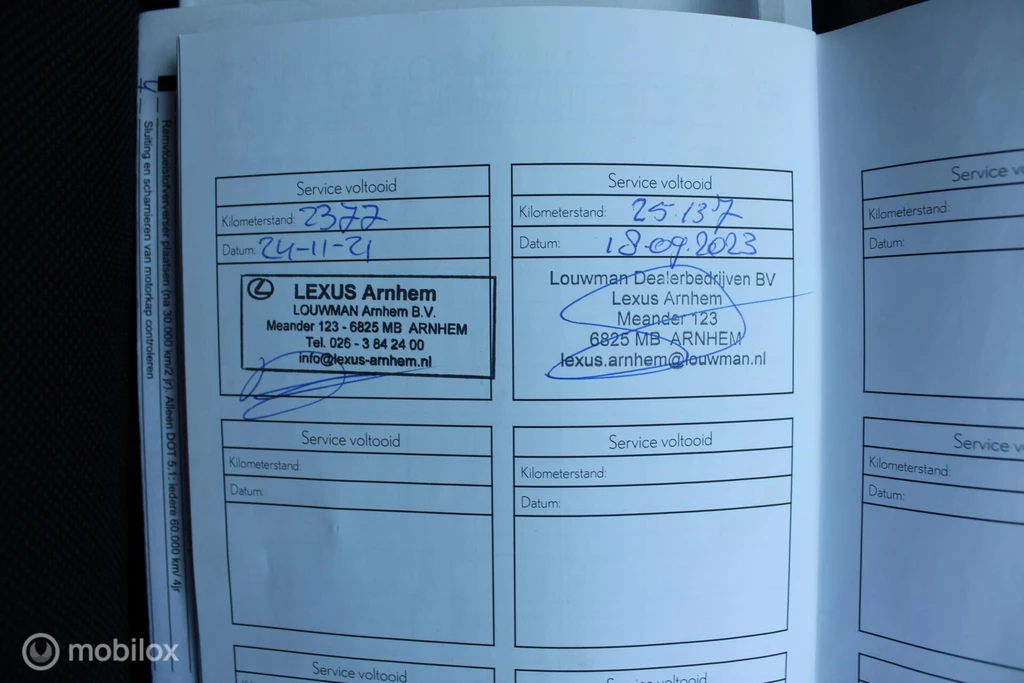 Service voltooid
Kilometerstand: 2377
Datum: 24-11-21
LEXUS Arnhem
LOUWMAN Arnhem B.V.
Meander 123 - 6825 MB ARNHEM
Tel. 026 - 3 84 24 00
info@lexus-arnhem.nl
Service voltooid
Kilometerstand: 25.137
Datum: 18-09-2023
Louwman Dealerbedrijven BV
Lexus Arnhem
Meander 123
6825 MB ARNHEM
lexus.arnhem@louwman.nl
Service
Kilometerstand:
Datum:
Service voltooid
Kilometerstand:
Datum:
Service voltooid
Kilometerstand:
Datum:
Service
Kilometerstand:
Datum:
Service voltooid
Service voltooid
Remvloeistofververser plaatsen (na 30.000 km/2 jr). Alleen DOT 5.1: Iedere 60.000 km/ 4jr
Sluiting en scharnieren van motorkap controleren
mobilox